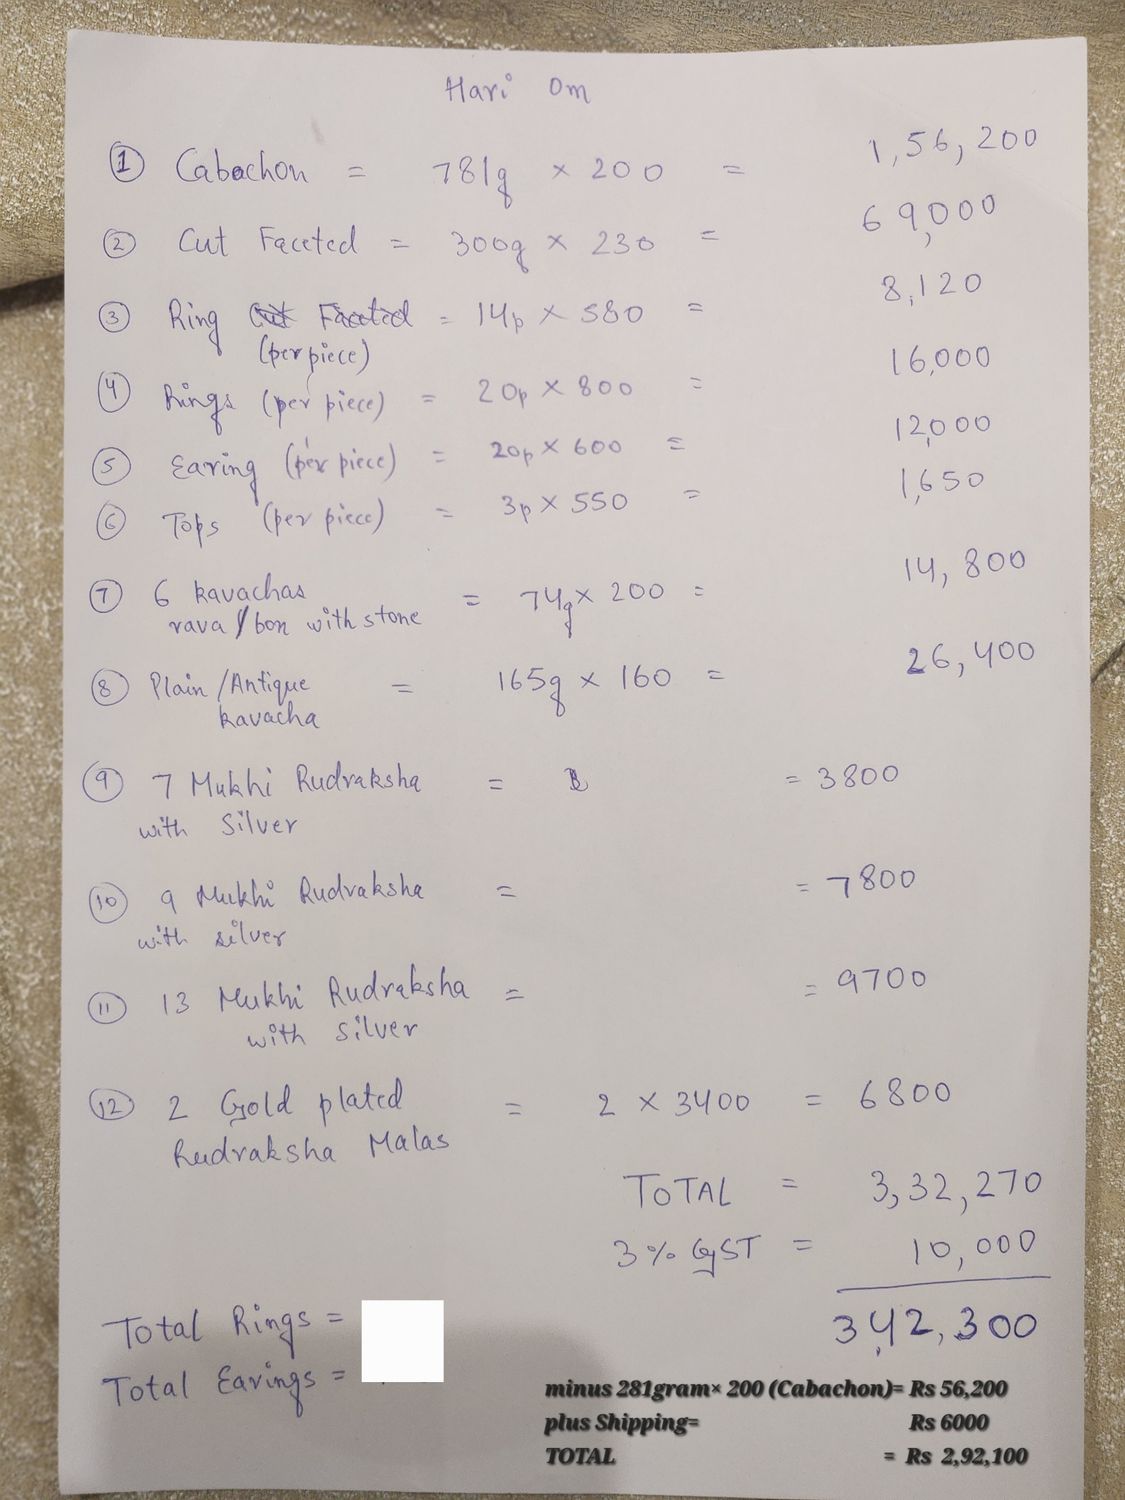 Hari Om
① Cabochon = 781g × 200 = 1,56,200
② Cut Faceted = 300g × 230 = 69,000
③ Ring Cut Faceted = 14p × 580 = 8,120
(per piece)
④ Rings (per piece) = 20p × 800 = 16,000
⑤ Earing (per piece) = 20p × 600 = 12,000
⑥ Tops (per piece) = 3p × 550 = 1,650
⑦ 6 kavachas = 74g × 200 = 14,800
rava / box with stone
⑧ Plain / Antique = 165g × 160 = 26,400
kavacha
⑨ 7 Mukhi Rudraksha = = 3800
with Silver
⑩ 9 Mukhi Rudraksha = = 7800
with silver
⑪ 13 Mukhi Rudraksha = = 9700
with Silver
⑫ 2 Gold plated = 2 × 3400 = 6800
Rudraksha Malas
TOTAL = 3,32,270
3% GST = 10,000
342,300
Total Rings =
Total Earings =
minus 281gram× 200 (Cabachon)= Rs 56,200
plus Shipping= Rs 6000
TOTAL = Rs 2,92,100